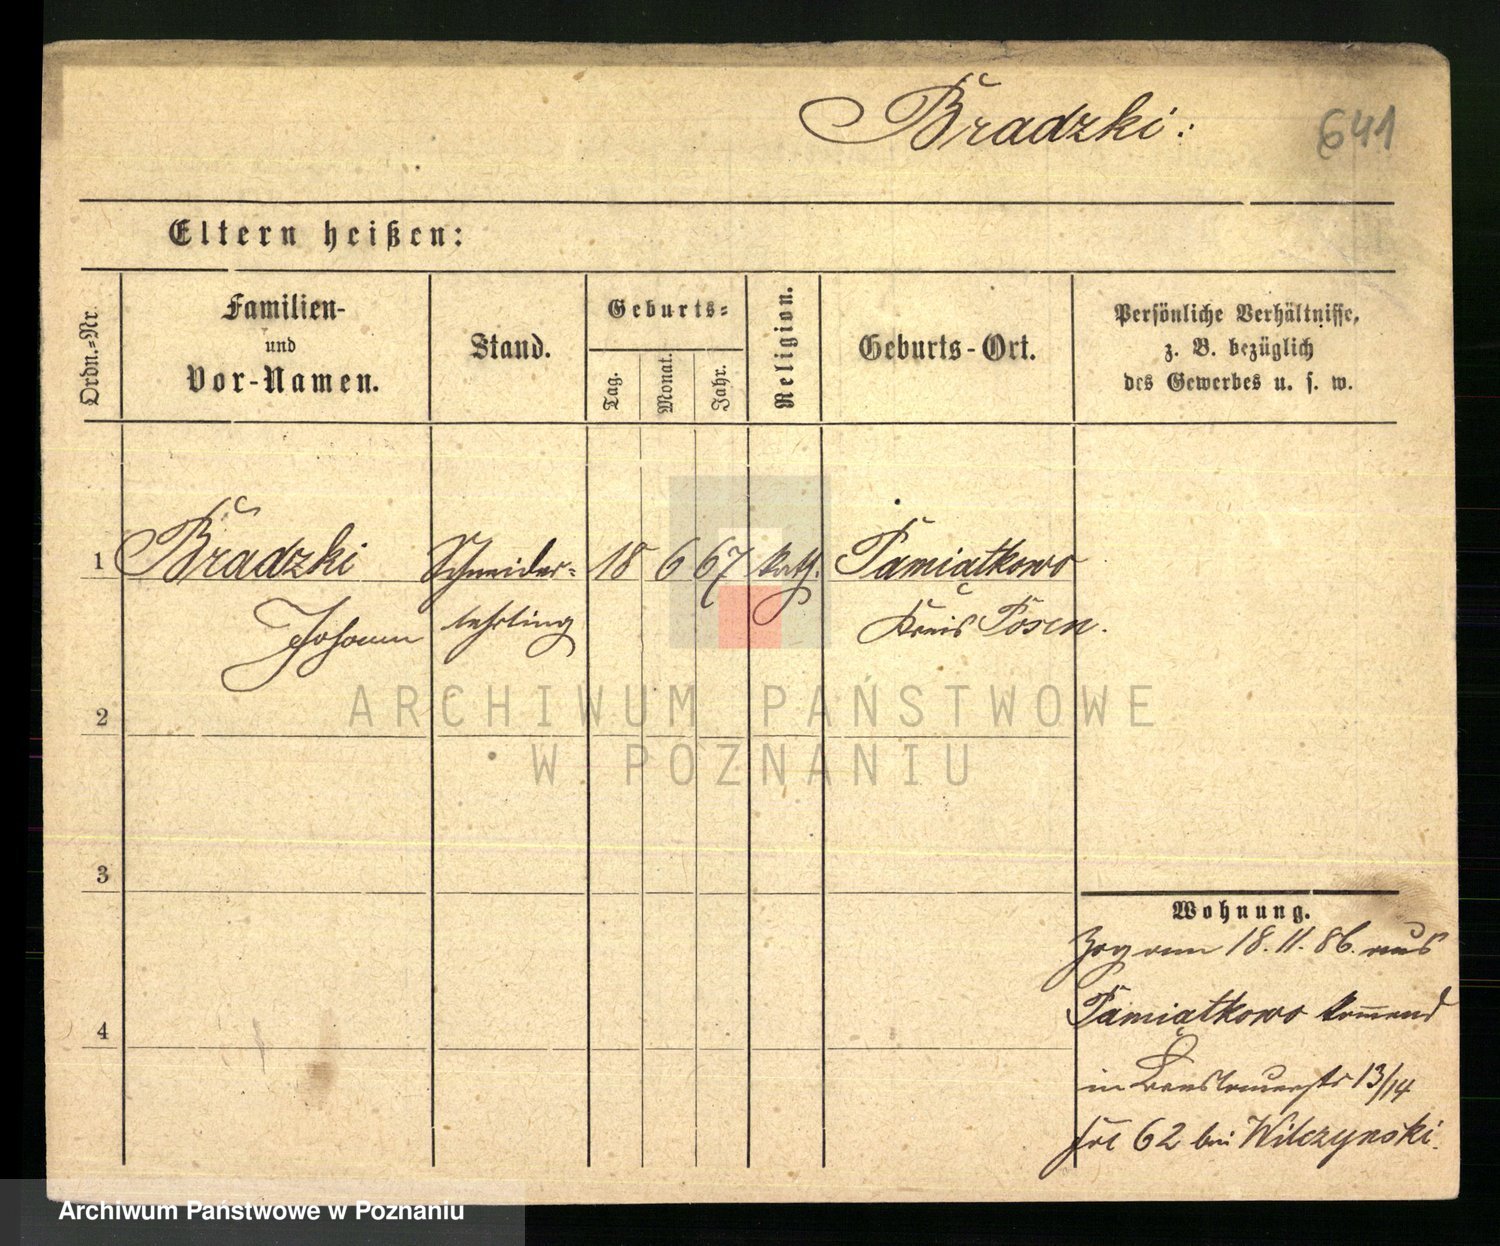 Bradzki:
641
Eltern heißen:
Ordn.-Nr.
Familien-
und
Vor-Namen.
Stand.
Geburts-
Tag.
Monat.
Jahr.
Religion.
Geburts-Ort.
Persönliche Verhältnisse,
z. B. bezüglich
des Gewerbes u. s. w.
1 Bradzki Schneider- 18 6 67 kath. Pamiątkowo
Johann lehrling Kreis Posen.
2
ARCHIWUM PAŃSTWOWE
W POZNANIU
3
Wohnung.
Zog am 18.11.86. aus
4
Pamiątkowo kommend
in 13/14
62 bei Wilczynski.
Archiwum Państwowe w Poznaniu